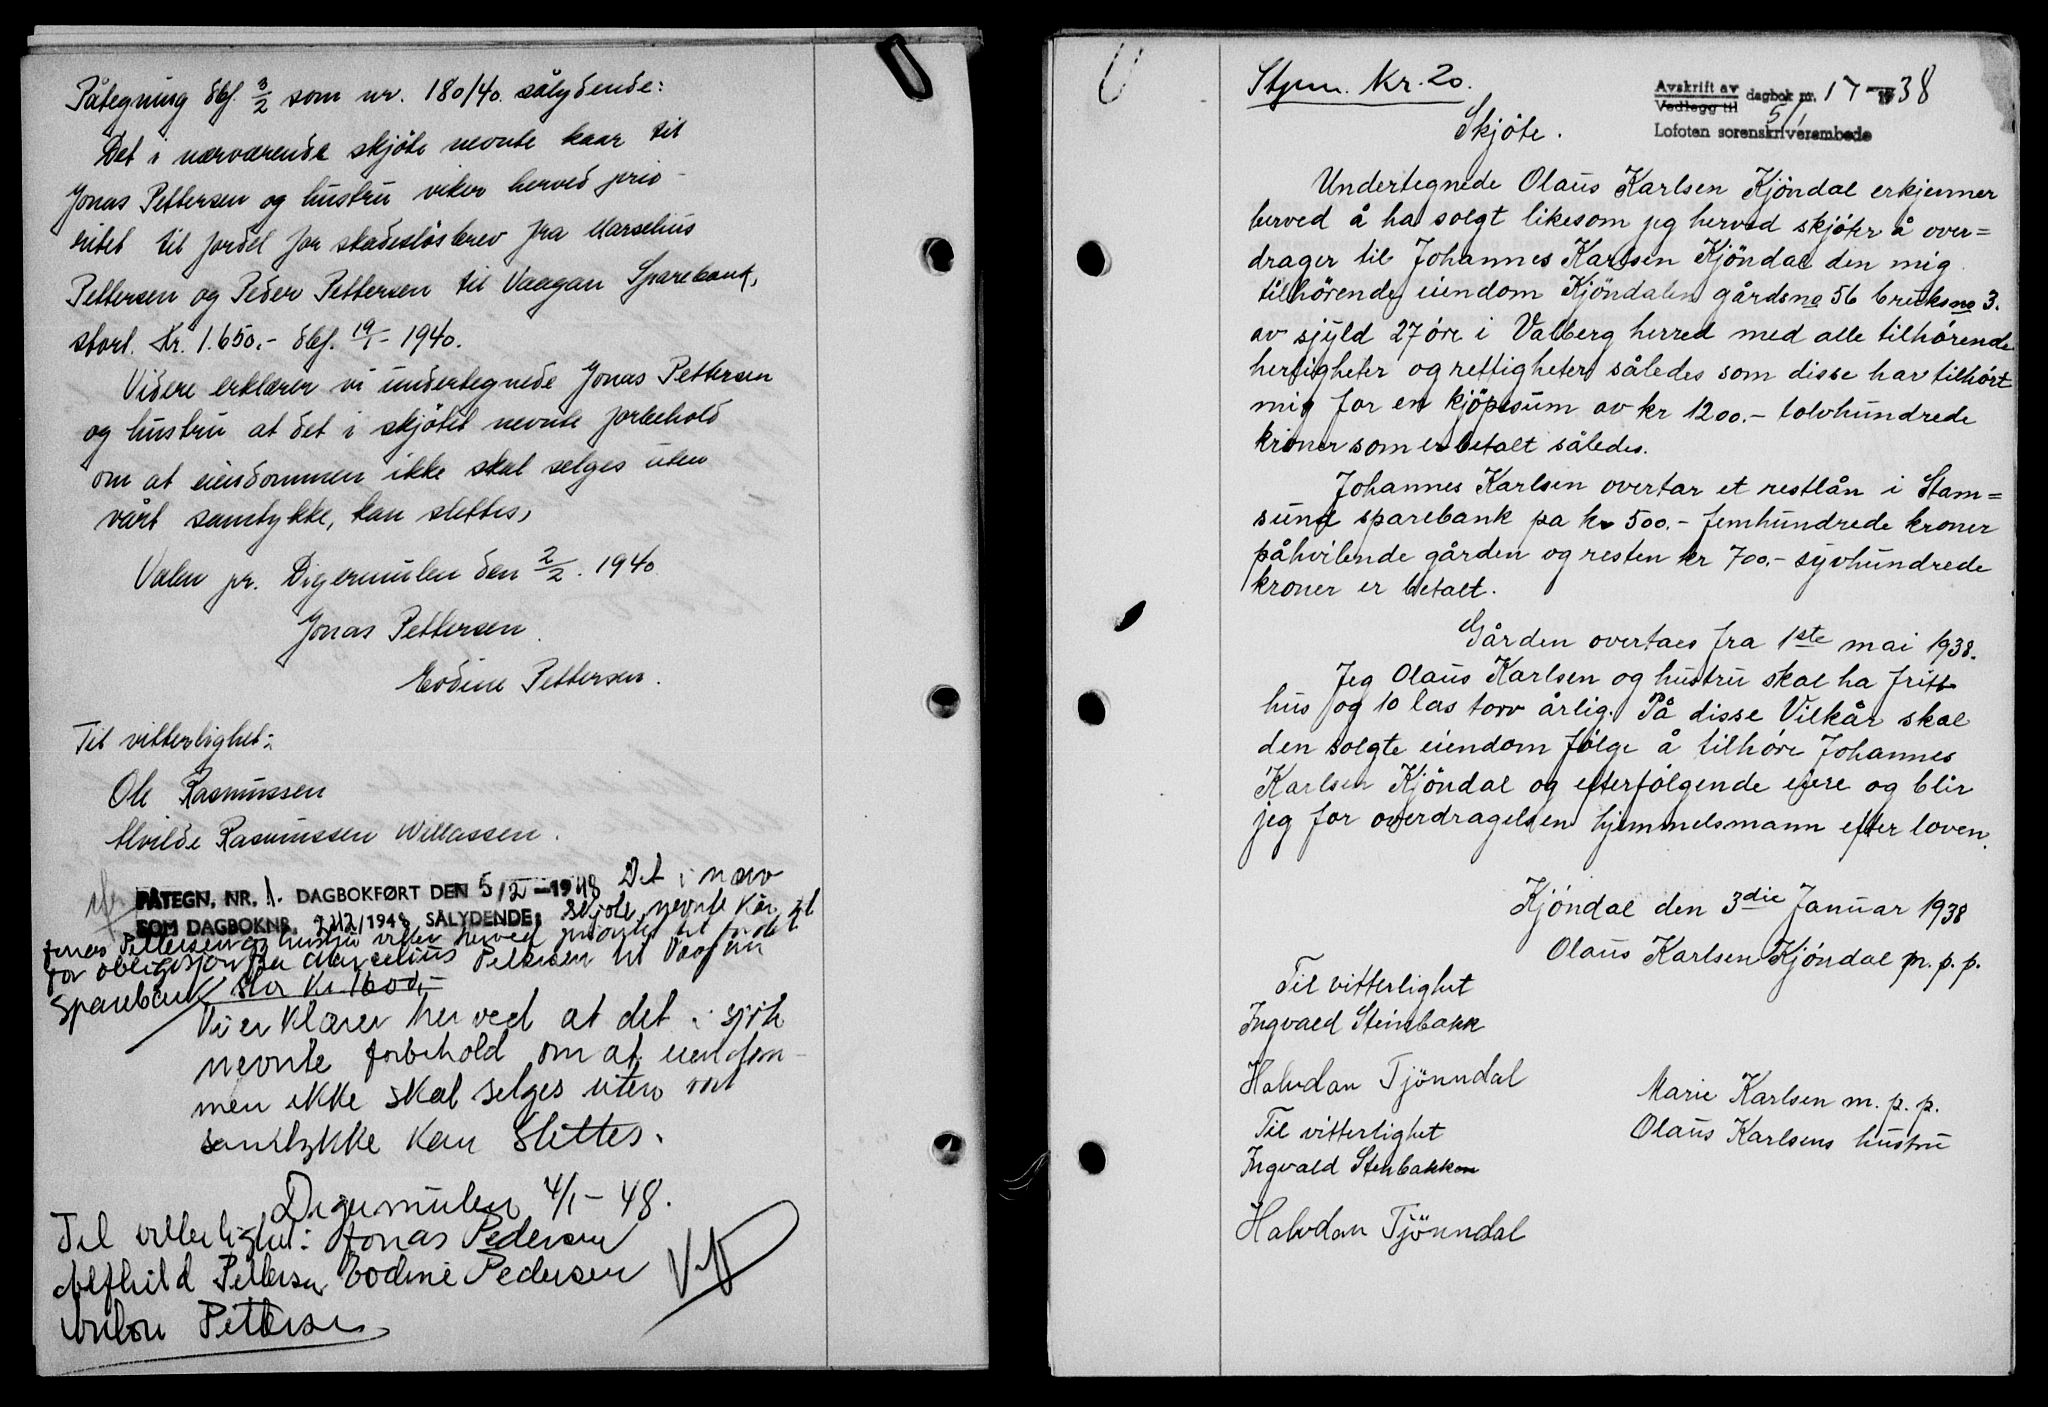 Påtegning dbf. 3/2 som nr. 180/40. sålydende:
Det i nærværende skjöte nevnte kaar til
Jonas Pettersen og hustru viker herved prio-
ritet til fordel for skadeslösbrev fra Marselius
Pettersen og Peder Pettersen til Vaagan Sparebank,
stort. Kr. 1.650.- dbf. 19/1 - 1940.
Videre erklærer vi undertegnede Jonas Pettersen
og hustru at det i skjötet nevnte forbehold
om at eiendommen ikke skal selges uten
vårt samtykke, kan slettes,
Valen pr. Digermulen den 2/2. 1940
Jonas Pettersen.
Eodine Pettersen.
Til vitterlighet:
Ole Rasmussen
Alvilde Rasmussen Willassen.
PÅTEGN. NR. 1. DAGBOKFØRT DEN 5/2-1948 Det i nærv
SOM DAGBOKNR. /1948 SÅLYDENDE: skjöte nevnte Kår til
Jonas Pettersen og hustru viker herved prioritet til fordel
for obligasjon fra Marcelius Pettersen til Vaagan
Sparebank stor Kr 1600,-
Vi erklærer herved at det i sjöte
nevnte forbehold om at eiendom-
men ikke skal selges uten vårt
samtykke kan Slettes.
Digermulen 4/1-48.
Til vitterlighet: Jonas Pedersen
Alfhild Pettersen Eodine Pedersen
Pettersen
Stpm. Kr. 20.
Avskrift av
Vedlegg til dagbok nr. 17 - 1938
5/1
Lofoten sorenskriverembede
Skjöte.
Undertegnede Olaus Karlsen Kjöndal erkjenner
herved å ha solgt likesom jeg herved skjöter å over=
drager til Johannes Karlsen Kjöndal den mig
tilhörende eiendom Kjöndalen gårdsno 56 bruksno 3.
av sjyld 27 öre i Valberg herred med alle tilhörende
herligheter og rettigheter således som disse har tilhört
mig for en kjöpesum av kr 1200.- tolvhundrede
kroner som er betalt således.
Johannes Karlsen overtar et restlån i Stam=
sund sparebank pa kr 500.- femhundrede kroner
påhvilende gården og resten kr 700.- syvhundrede
kroner er betalt.
Gården overtaes fra 1ste mai 1938.
Jeg Olaus Karlsen og hustru skal ha fritt
hus og 10 las torv årlig. På disse Vilkår skal
den solgte eiendom fölge å tilhöre Johannes
Karlsen Kjöndal og efterfölgende eiere og blir
jeg for overdragelsen hjemmelsmann efter loven.
Kjöndal den 3die Januar 1938
Olaus Karlsen Kjöndal m. p. p.
Til vitterlighet
Ingvald Steinbakk
Halvdan Tjönndal
Marie Karlsen m. p. p.
Til vitterlighet
Olaus Karlsens hustru
Ingvald Stenbakken
Halvdan Tjönndal